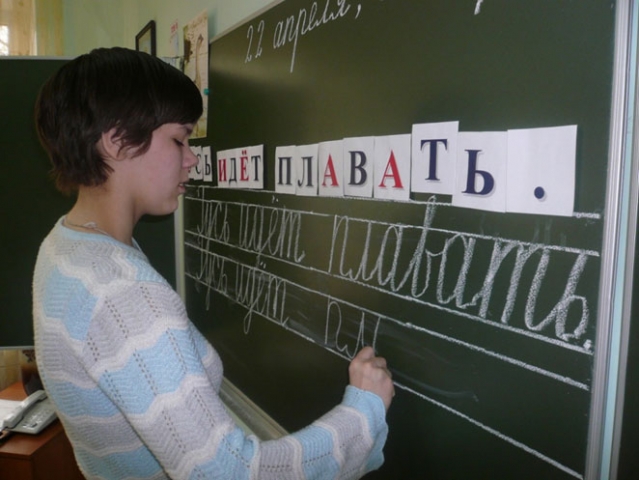 22 апреля,
СЬ ИДЁТ ПЛАВАТЬ.
Гусь идёт плавать.
Гусь идёт пл